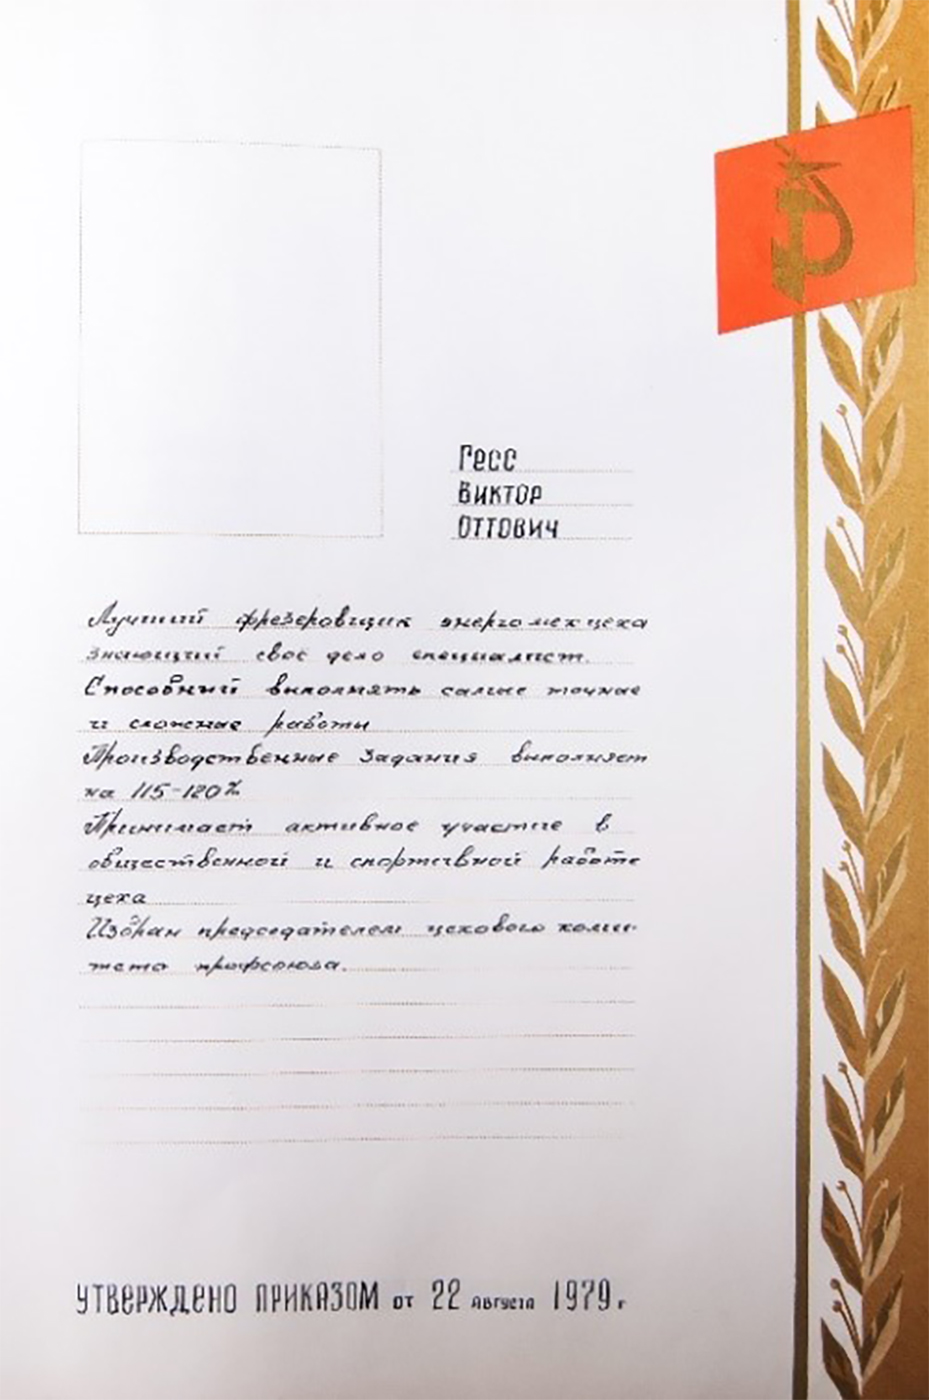 Гесс
Виктор
Оттович
Лучший фрезеровщик энергомехцеха
знающий своё дело специалист.
Способный выполнять самые точные
и сложные работы
Производственные задания выполняет
на 115-120%
Принимает активное участие в
общественной и спортивной работе
цеха
Избран председателем цехового коми-
тета профсоюза.
УТВЕРЖДЕНО ПРИКАЗОМ от 22 Августа 1979 г